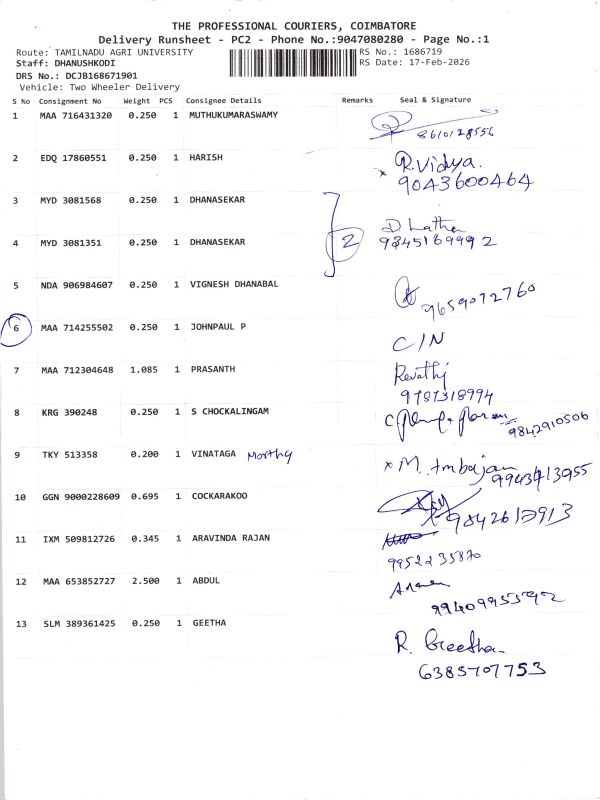 THE PROFESSIONAL COURIERS, COIMBATORE
Delivery Runsheet - PC2 - Phone No.:9047080280 - Page No.:1
Route: TAMILNADU AGRI UNIVERSITY RS No.: 1686719
Staff: DHANUSHKODI RS Date: 17-Feb-2026
DRS No.: DCJB168671901
Vehicle: Two Wheeler Delivery
S No Consignment No Weight PCS Consignee Details Remarks Seal & Signature
1 MAA 716431320 0.250 1 MUTHUKUMARASWAMY
8610128556
2 EDQ 17860551 0.250 1 HARISH x R.Vidya.
9043600464
3 MYD 3081568 0.250 1 DHANASEKAR
2
4 MYD 3081351 0.250 1 DHANASEKAR 9345169992
5 NDA 906984607 0.250 1 VIGNESH DHANABAL
9659072760
6 MAA 714255502 0.250 1 JOHNPAUL P C/N
7 MAA 712304648 1.085 1 PRASANTH Revathj
9787318994
8 KRG 390248 0.250 1 S CHOCKALINGAM
9842910506
9 TKY 513358 0.200 1 VINATAGA Morthy x M.
9943413955
10 GGN 9000228609 0.695 1 COCKARAKOO
11 IXM 509812726 0.345 1 ARAVINDA RAJAN
9952235870
12 MAA 653852727 2.500 1 ABDUL
13 SLM 389361425 0.250 1 GEETHA R. Geetha
6385707753